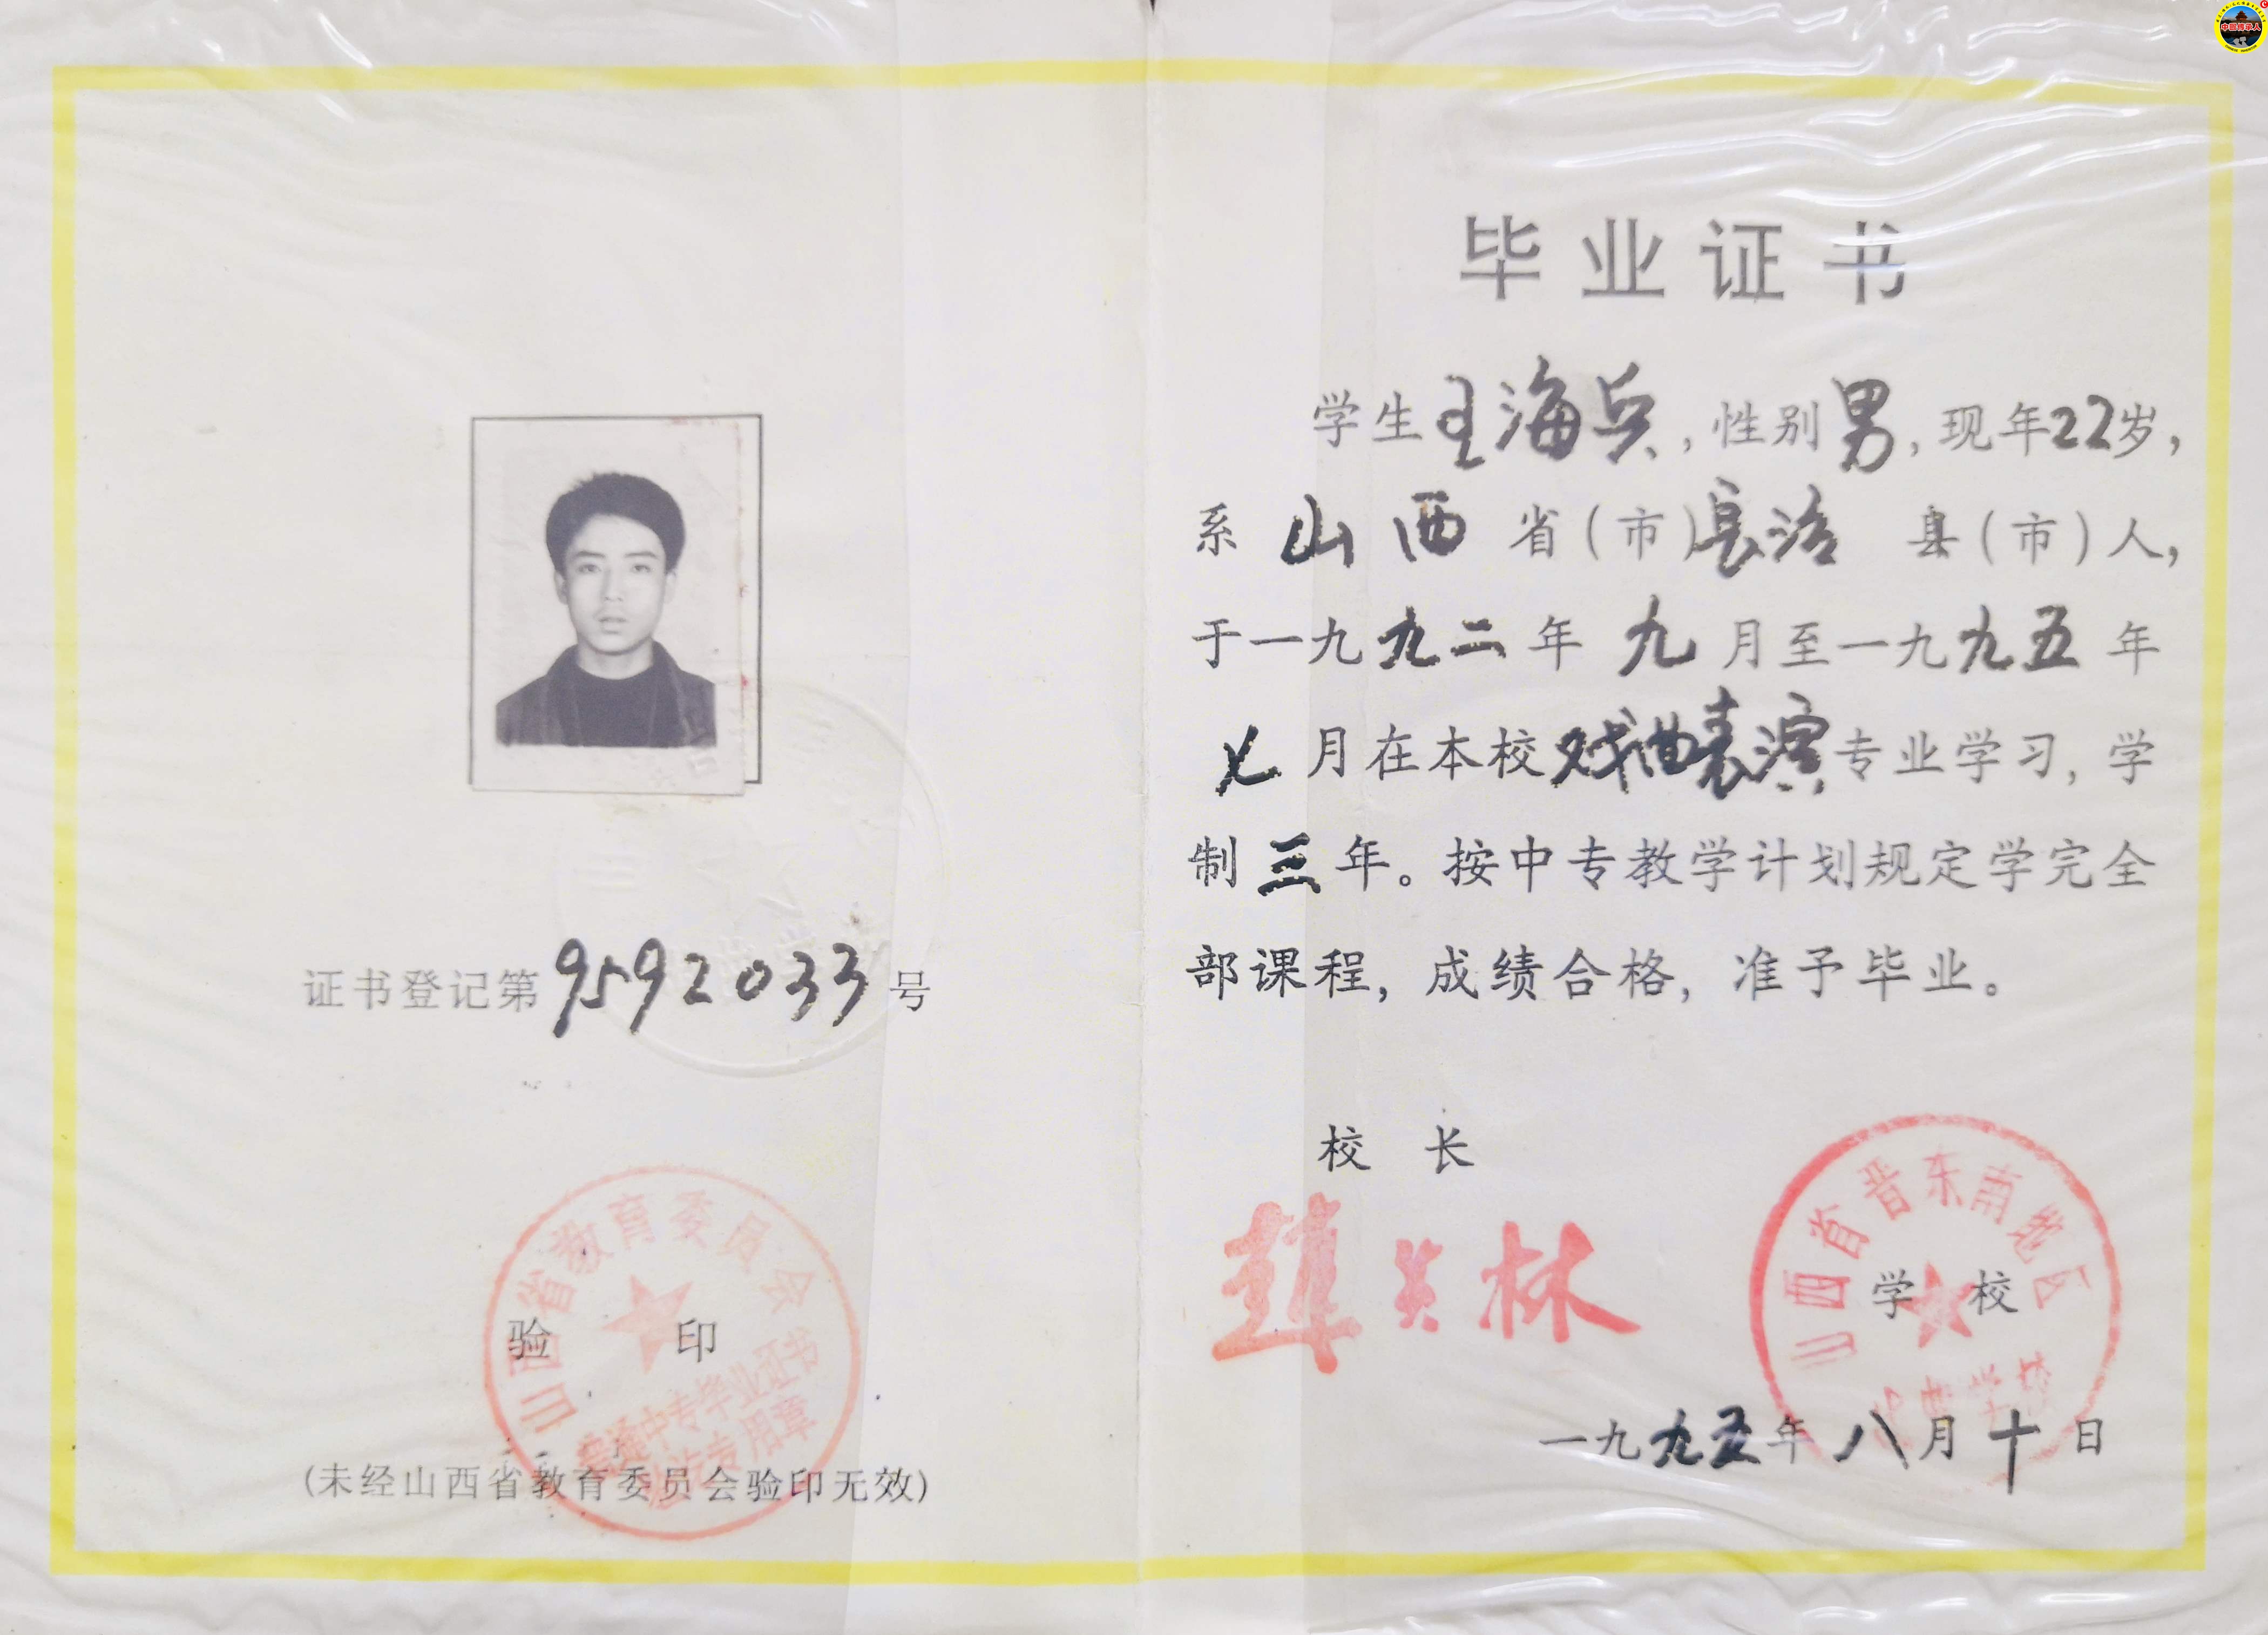 证书登记第9592033号
山西省教育委员会
验 印
普通中专毕业证书
专用章
(未经山西省教育委员会验印无效)
毕业证书
学生王海兵,性别男,现年22岁,
系山西省(市)长治县(市)人,
于一九九二年九月至一九九五年
七月在本校戏曲表演专业学习,学
制三年。按中专教学计划规定学完全
部课程,成绩合格,准予毕业。
校 长
山西省晋东南地区
学 校
一九九五年八月十日